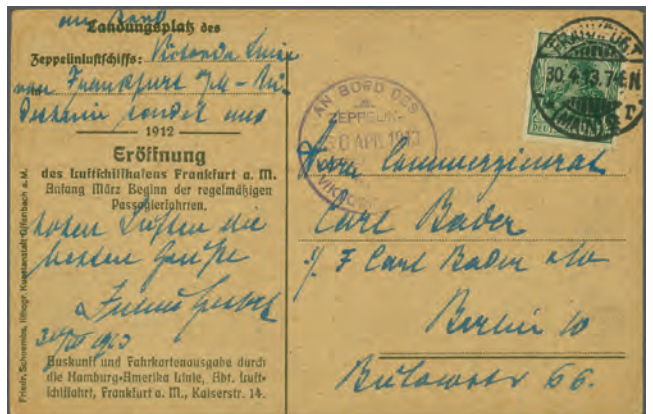 an Bord
Landungsplatz des
Zeppelinluftschiffs: Victoria Luise
von Frankfurt
sendet aus
1912
Eröffnung
des Luftschiffhafens Frankfurt a. M.
Anfang März Beginn der regelmäßigen
Passagierfahrten.
hohen Lüften die
besten Grüße
1913
Auskunft und Fahrkartenausgabe durch
die Hamburg-Amerika Linie, Abt. Luft-
schiffahrt, Frankfurt a. M., Kaiserstr. 14.
Friedr. Schrembs, lithogr. Kunstanstalt Offenbach a.M.
AN BORD DES
ZEPPELIN-
30 APR. 1913
FRANKFURT
30.4.13.7-8N
(MAIN) 9
Herrn Commerzienrat
Carl Bader
Carl Bader
Berlin W
Bülowstr 66.